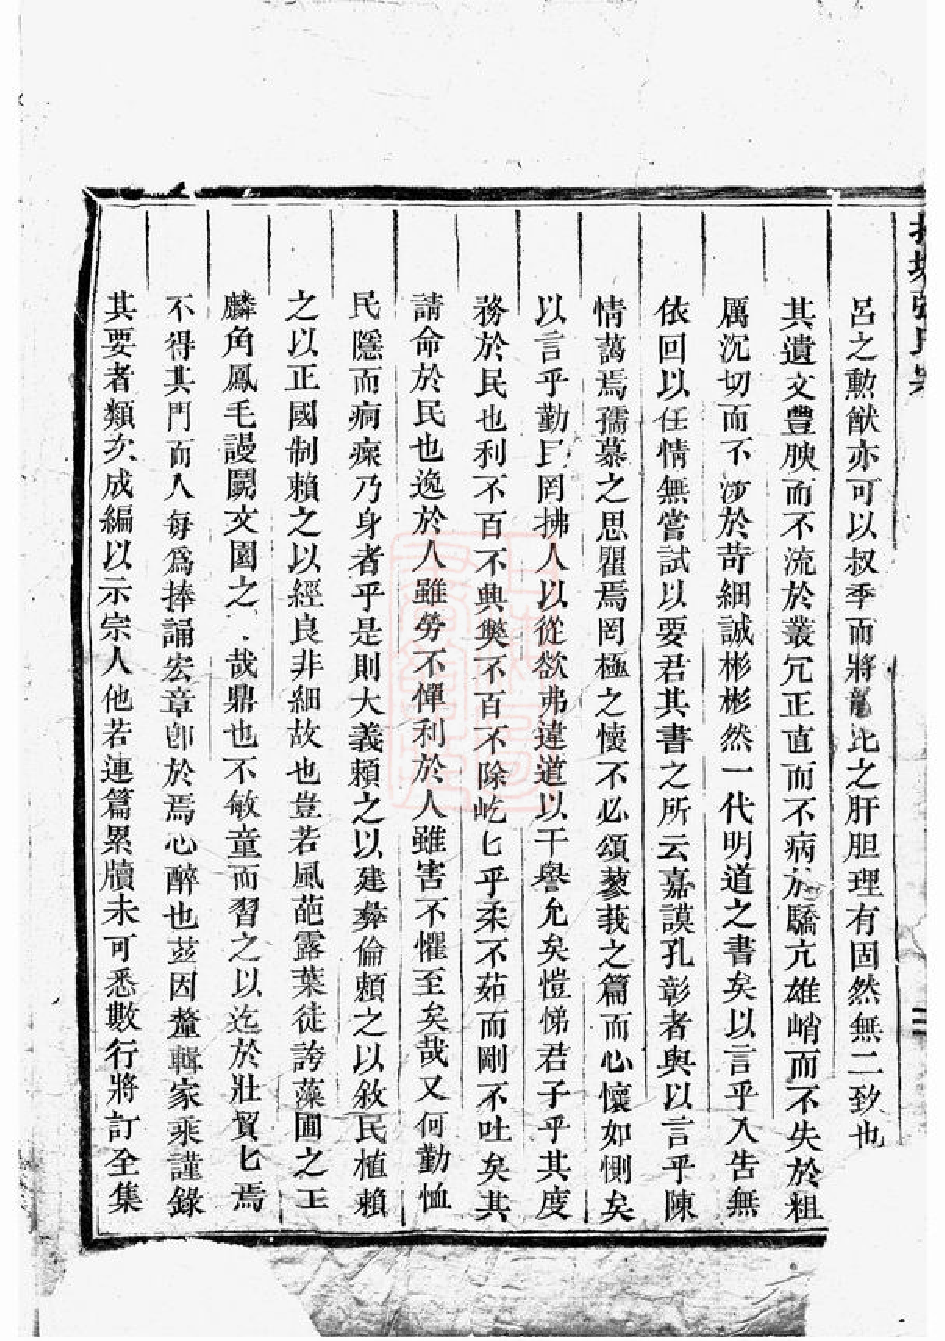 張氏
二
呂之勳猷亦可以叔季而將龍比之肝胆理有固然無二致也
其遺文豐腴而不流於叢冗正直而不病於驕亢雄峭而不失於粗
厲沉切而不涉於苛細誠彬彬然一代明道之書矣以言乎入告無
依回以任情無嘗試以要君其書之所云嘉謨孔彰者與以言乎陳
情藹焉孺慕之思瞿焉罔極之懷不必頌蓼莪之篇而心懷如惻矣
以言乎勤民罔拂人以從欲弗違道以干譽允矣愷悌君子乎其度
務於民也利不百不興獘不百不除屹匕乎柔不茹而剛不吐矣其
請命於民也逸於人雖勞不憚利於人雖害不懼至矣哉又何勤恤
民隱而痌瘝乃身者乎是則大義賴之以建彜倫賴之以敘民植賴
之以正國制賴之以經良非細故也豈若風葩露葉徒誇藻圃之王
麟角鳳毛謾鬭文園之哉鼎也不敏童而習之以迄於壯貿匕焉
不得其門而入每爲捧誦宏章卽於焉心醉也茲因釐輯家乘謹錄
其要者類次成編以示宗人他若連篇累牘未可悉數行將訂全集